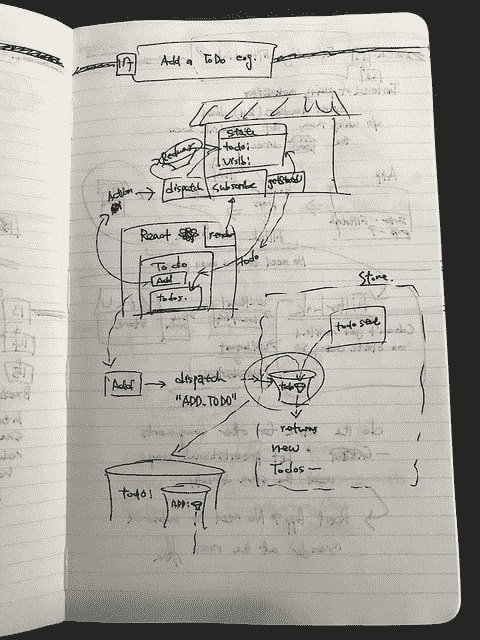 17
Add a ToDo eg.
State
todo:
Visib:
Reducer
Action
dispatch
subscribe
getState
React
render
To do
Add
todos.
todo
Store.
todo state
Add
dispatch
"ADD_TODO"
todo
returns
new
Todos —
todo:
ADD: